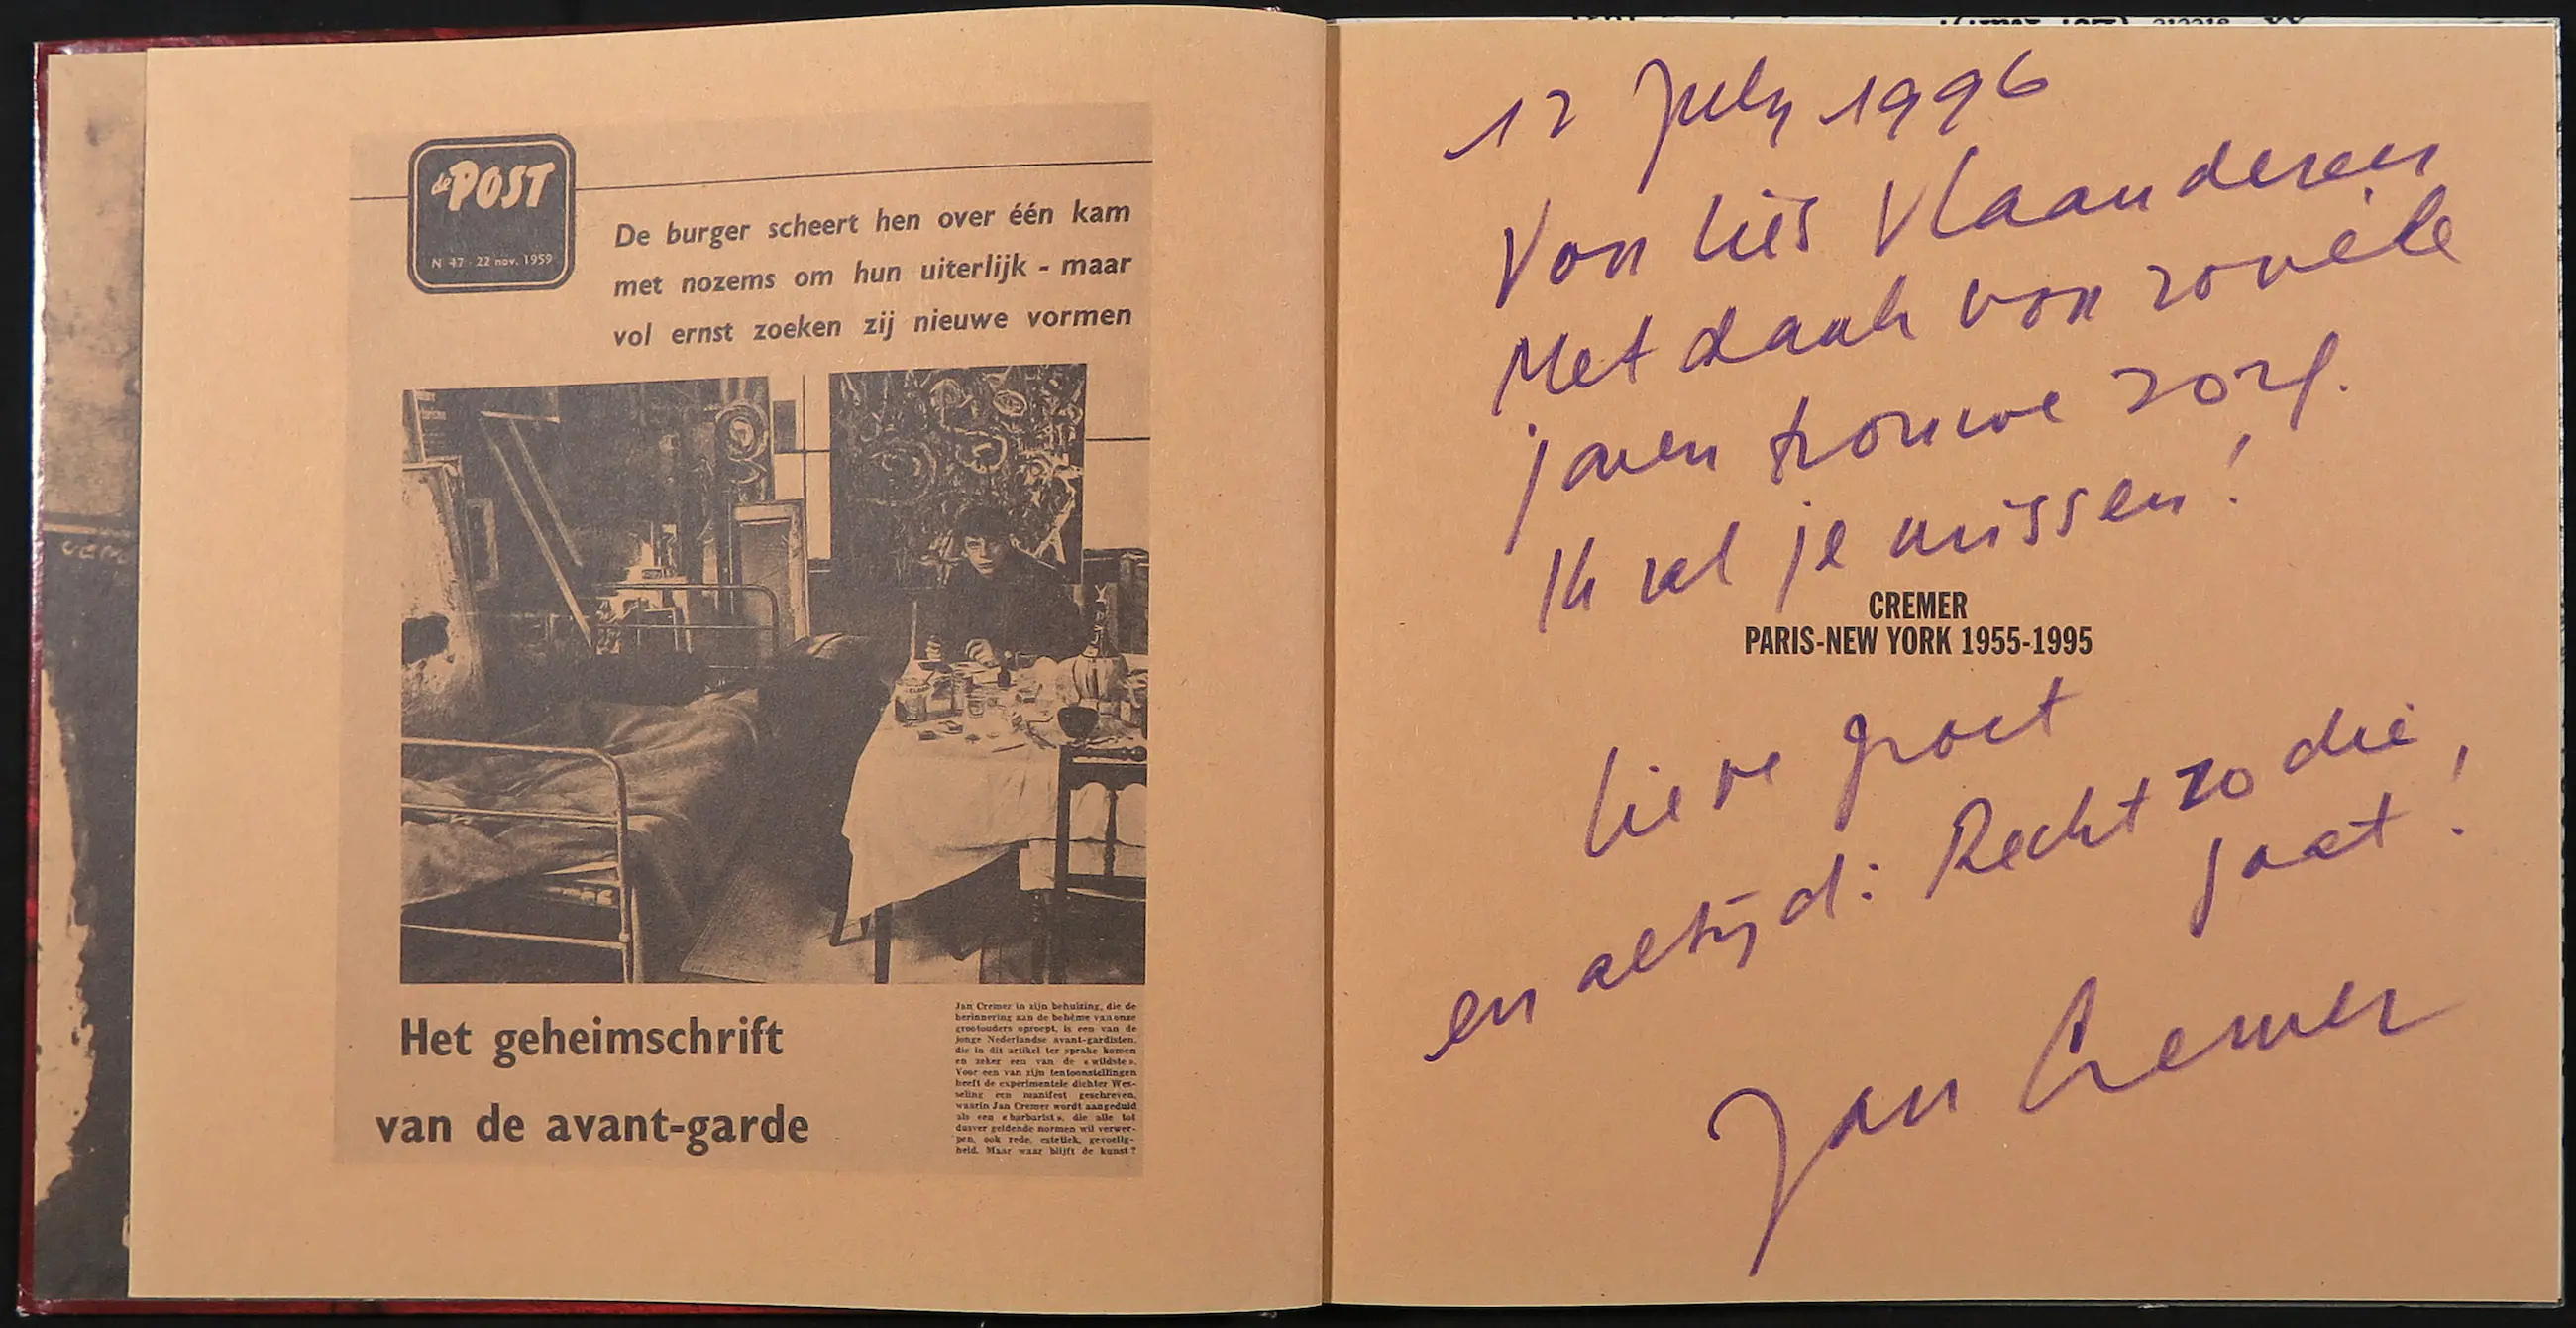 de POST
N 47 - 22 nov. 1959
De burger scheert hen over één kam
met nozems om hun uiterlijk - maar
vol ernst zoeken zij nieuwe vormen
Het geheimschrift
van de avant-garde
Jan Cremer in zijn behuizing, die de
herinnering aan de bohème van onze
grootouders oproept, is een van de
jonge Nederlandse avant-gardisten,
die in dit artikel ter sprake komen
en zeker een van de «wildste».
Voor een van zijn tentoonstellingen
heeft de experimentele dichter Wes-
seling een manifest geschreven,
waarin Jan Cremer wordt aangeduid
als een «barbarist», die alle tot
dusver geldende normen wil verwer-
pen, ook rede, estetiek, gevoelig-
heid. Maar waar blijft de kunst?
12 July 1996
Von Lies Vlaanderen
Met dank von zovele
jaren trouwe zorg.
Ik zal je missen!
CREMER
PARIS-NEW YORK 1955-1995
Lieve groet
en altijd: Recht zo die
gaat!
Jan Cremer